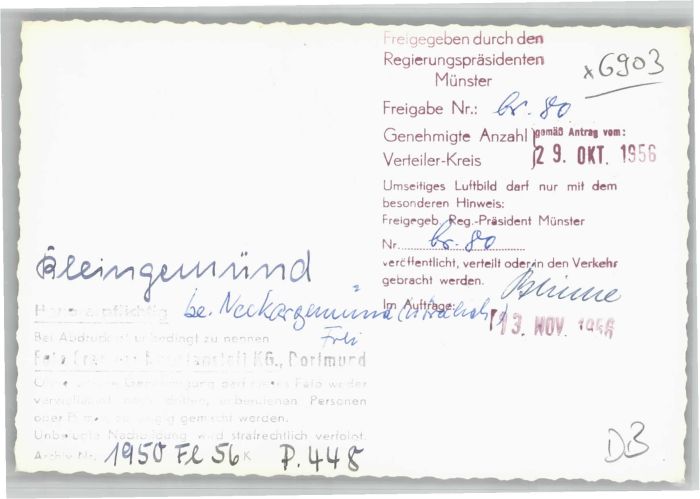 Freigegeben durch den
Regierungspräsidenten
Münster
x6903
Freigabe Nr.: br. 80
Genehmigte Anzahl
Verteiler-Kreis
gemäß Antrag vom:
29. OKT. 1956
Umseitiges Luftbild darf nur mit dem
besonderen Hinweis:
Freigegeb. Reg.-Präsident Münster
Nr. br. 80
veröffentlicht, verteilt oder in den Verkehr
gebracht werden.
Im Auftrage:
13. NOV. 1956
Kleingemünd
be. Neckargemünd
Honorarpflichtig
Bei Abdruck unbedingt zu nennen
Foto KG., Dortmund
Ohne Genehmigung darf dieses Foto weder
noch dritten, unberufenen Personen
gemacht werden.
Unbefugte wird strafrechtlich verfolgt.
Archiv Nr. 1950 Fl 56 K P. 448
DB